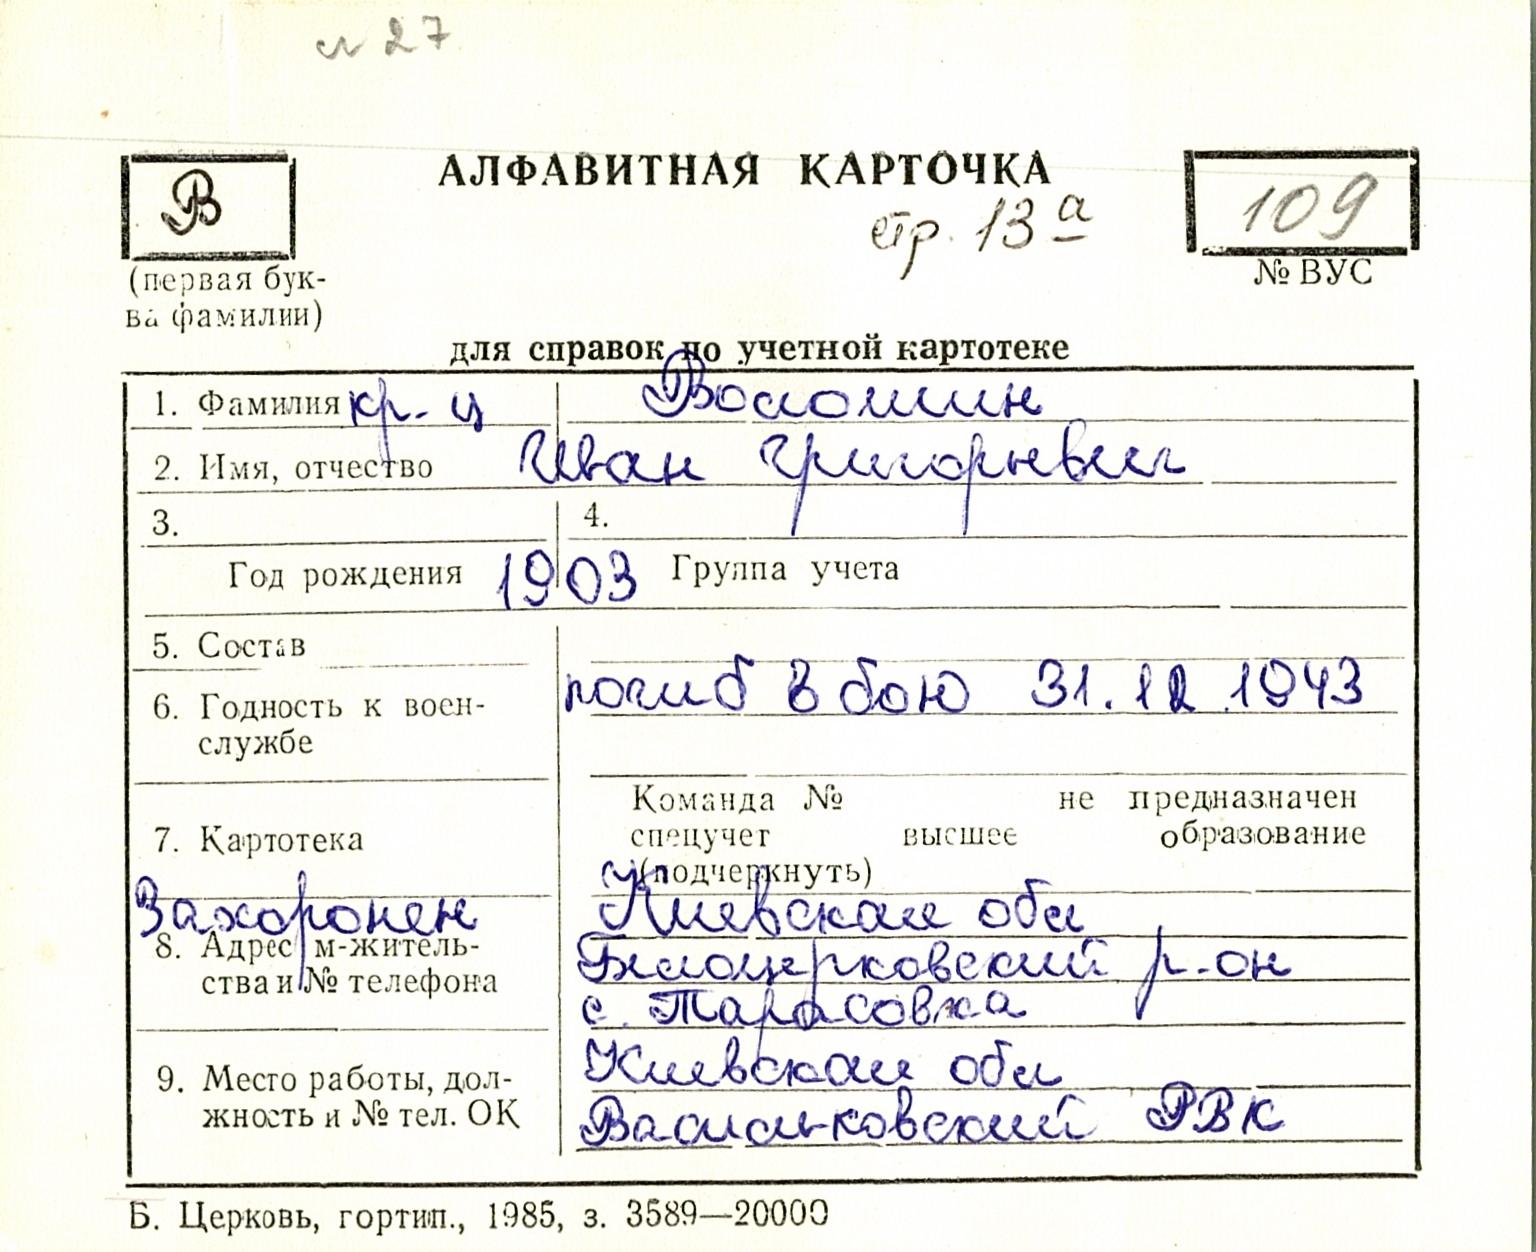 л 27
В
АЛФАВИТНАЯ КАРТОЧКА
стр. 13 а
109
(первая бук-
ва фамилии)
№ ВУС
для справок по учетной картотеке
1. Фамилия кр-ц Волошин
2. Имя, отчество Иван Григорьевич
3. 4.
Год рождения 1903 Группа учета
5. Состав
6. Годность к воен-
службе
погиб в бою 31.12.1943
Команда № не предназначен
спецучет высшее образование
(подчеркнуть)
7. Картотека
Захоронен Киевская обл
8. Адрес м-житель-
ства и № телефона
Білоцерковский р-он
с. Тарасовка
9. Место работы, дол-
жность и № тел. ОК
Киевская обл
Васильковский РВК
Б. Церковь, гортип., 1985, з. 3589—20000